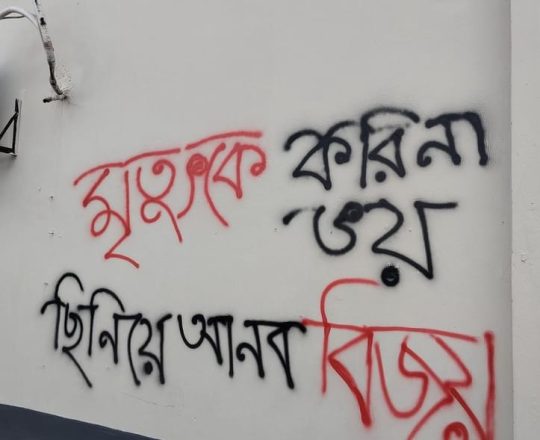 মৃত্যুকে করিনা
ভয়
ছিনিয়ে আনব বিজয়